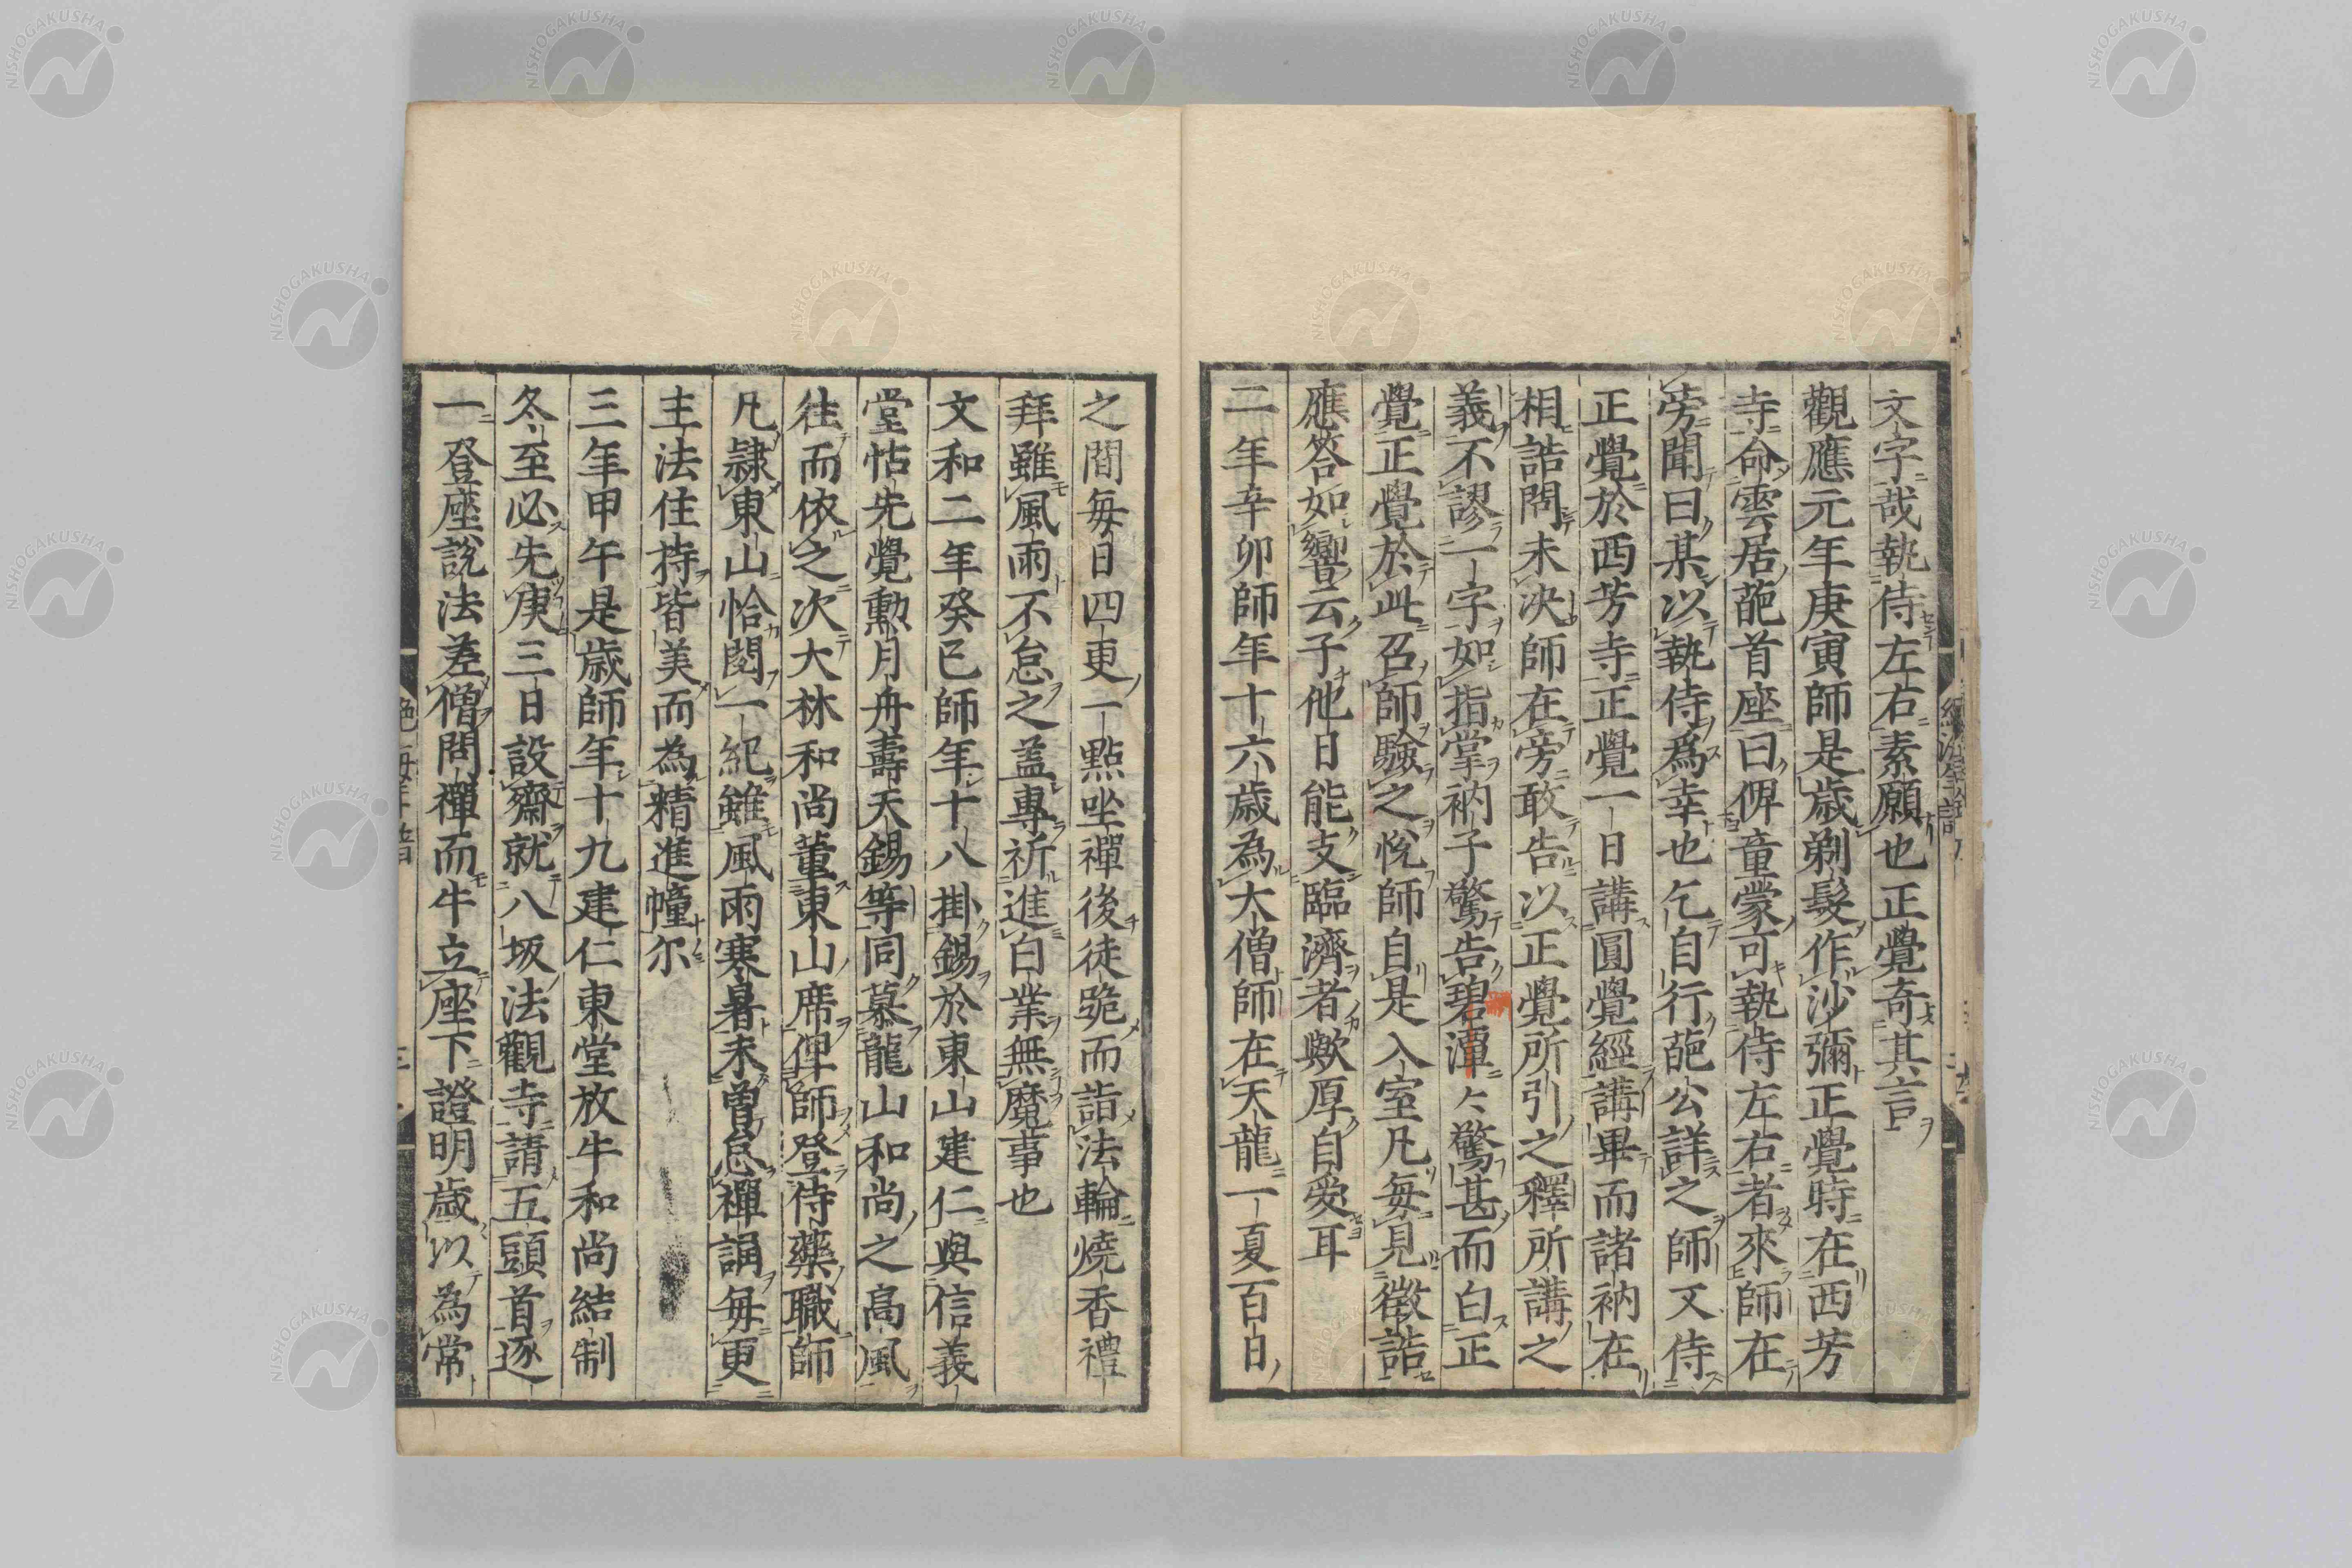 文字哉執侍左右素願也正覺奇其言
觀應元年庚寅師是歲剃髮作沙彌正覺時在西芳
寺命雲居葩首座曰俾童蒙可執侍左右者來師在
旁聞曰某以執侍爲幸也乞自行葩公詳之師又侍
正覺於西芳寺正覺一日講圓覺經講畢而諸衲在
相詰問未决師在旁敢告以正覺所引之釋所講之
義不謬一字如指掌衲子驚告碧潭々驚甚而白正
覺正覺於此召師驗之悅師自是入室凡每見徵詰
應答如響云子他日能支臨濟者歟厚自愛耳
二年辛卯師年十六歲為大僧師在天龍一夏百日
之間每日四更一點坐禪後徒跪而詣法輪燒香禮
拜雖風雨不怠之盖專祈進白業無魔事也
文和二年癸巳師年十八掛錫於東山建仁與信義
堂怙先覺勳月舟壽天錫等同慕龍山和尚之高風
徃而依之次大林和尚董東山席俾師登侍藥職師
凡隷東山恰閱一紀雖風雨寒暑未曾怠禪誦每更
主法住持皆美而為精進幢尔
三年甲午是歲師年十九建仁東堂放牛和尚結制
冬至必先庚三日設齋就八坂法觀寺請五頭首逐
一登座說法差僧問禪而牛立座下證明歲以為常
NISHOGAKUSHA